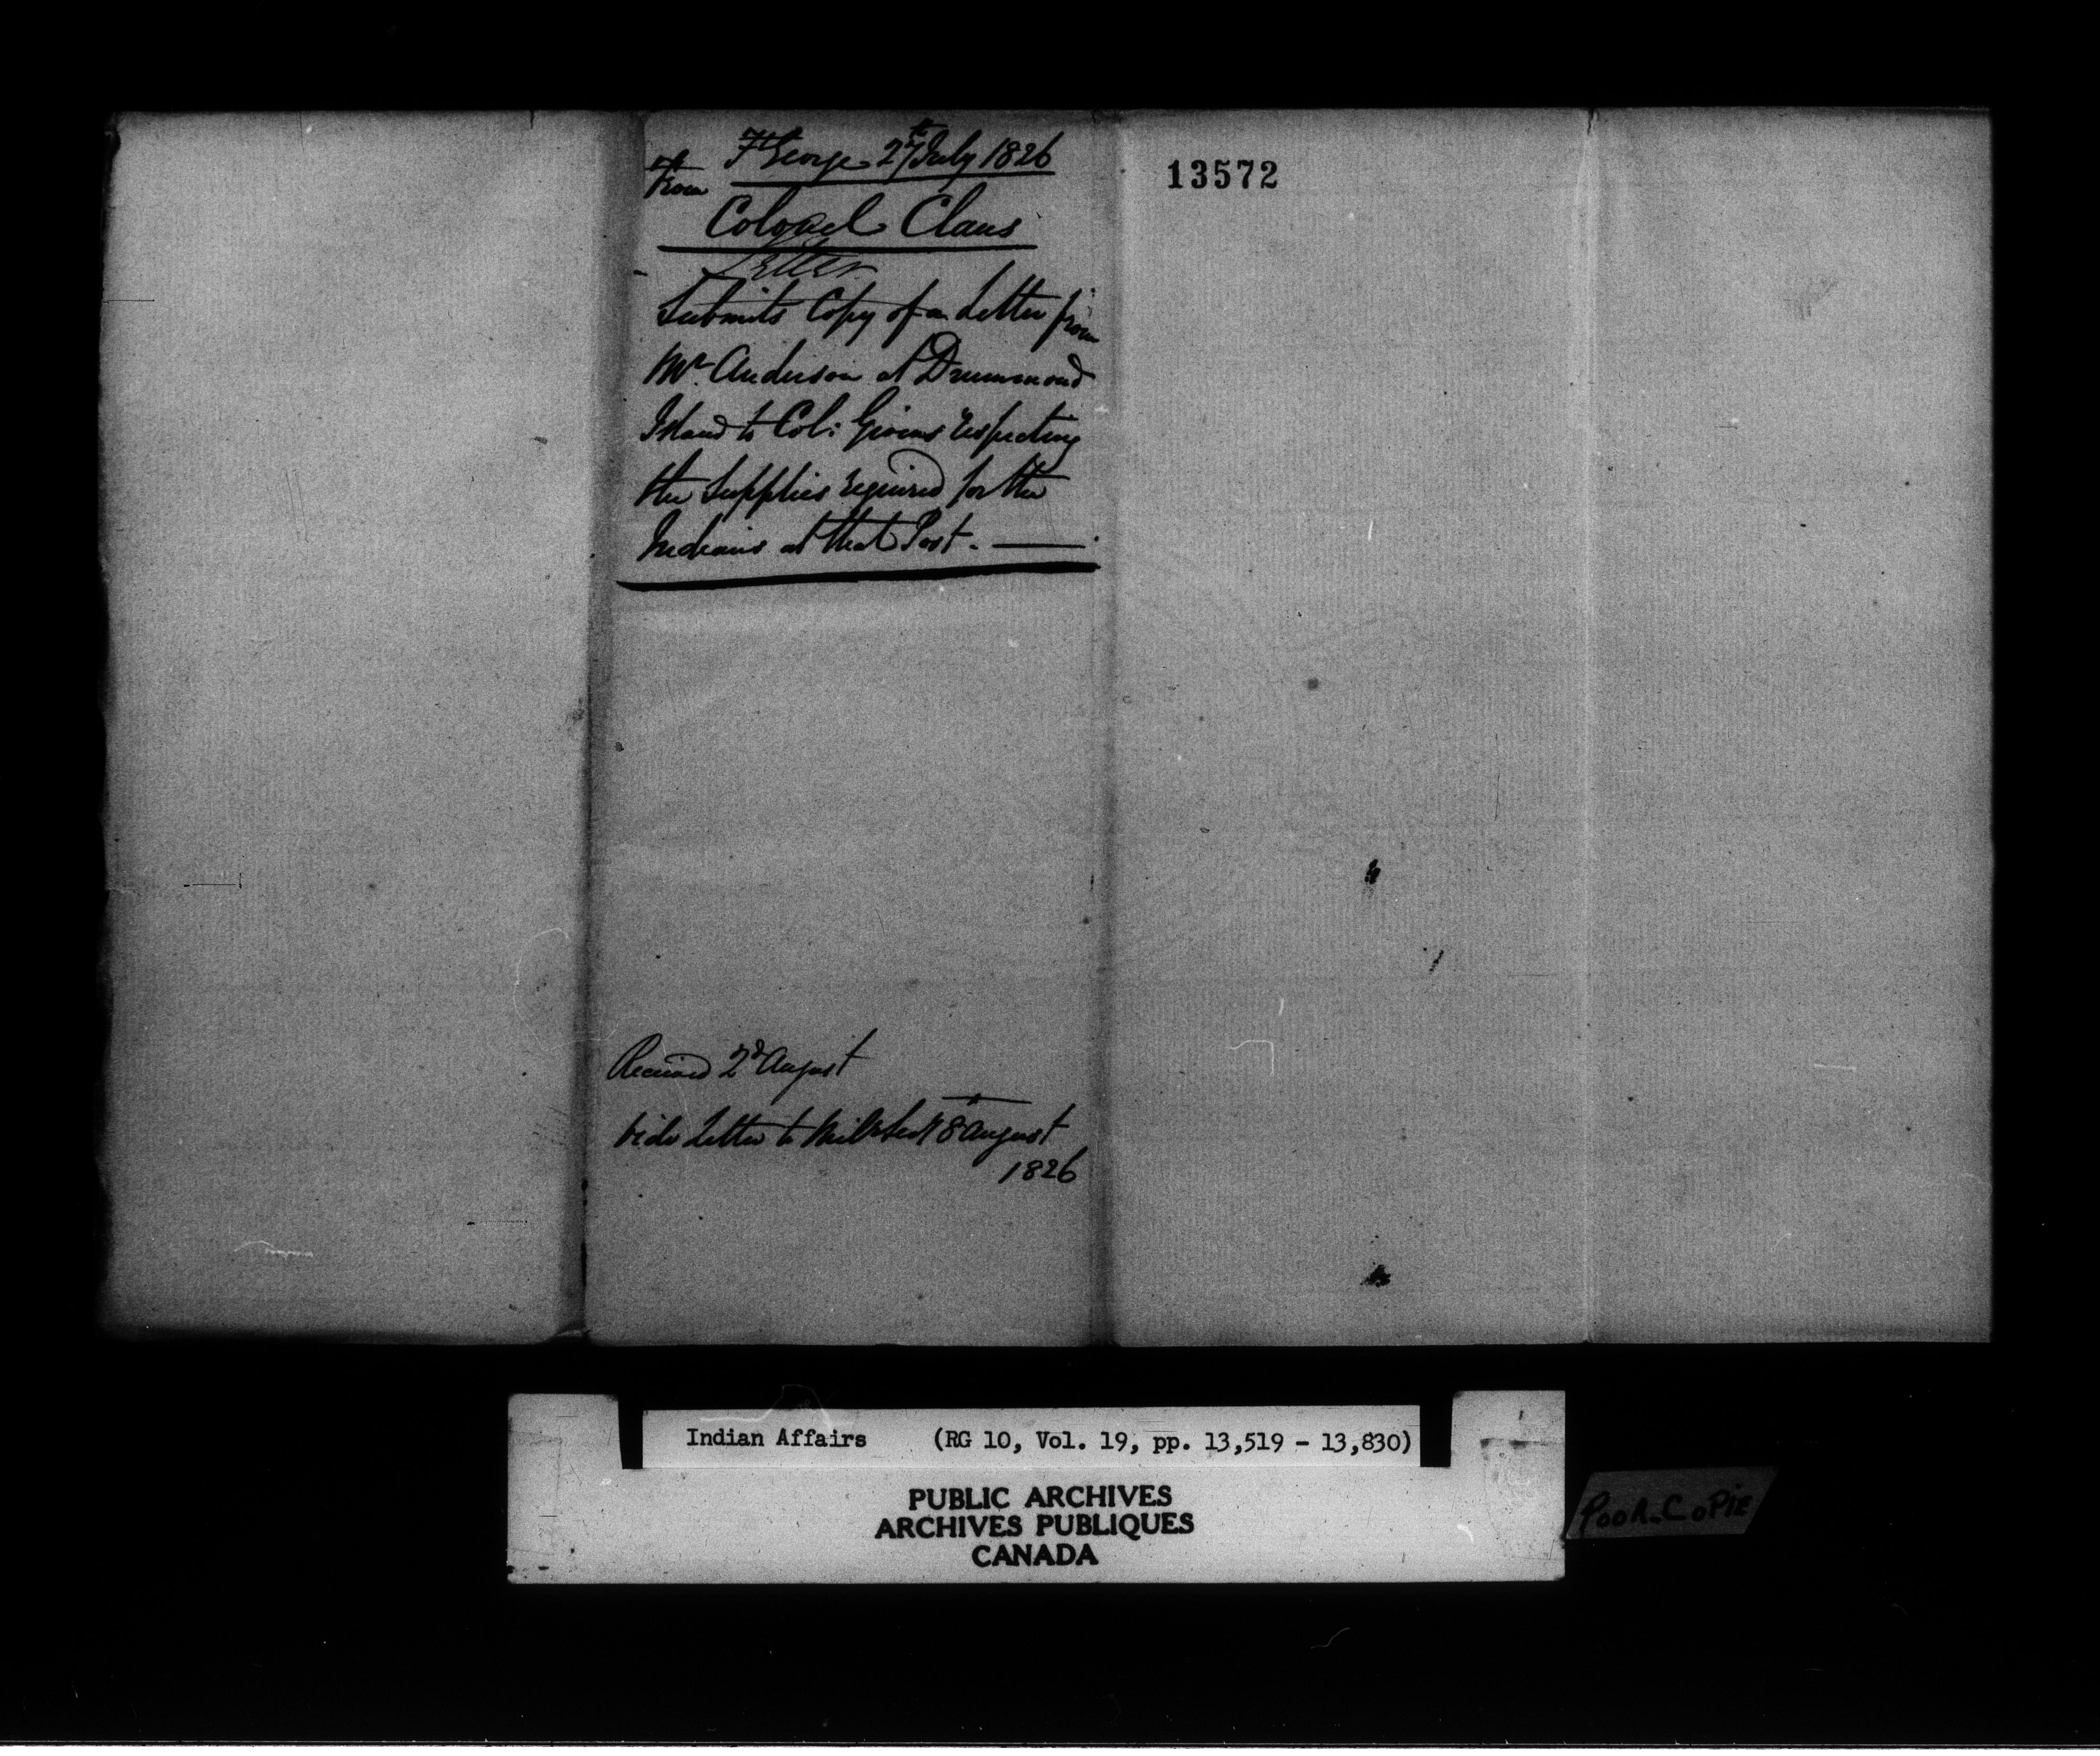 Ft George 27th July 1826
From
Colonel Claus
Letter
Submits Copy of a Letter from
Mr. Anderson at Drummond
Island to Col: Givens respecting
the Supplies required for the
Indians at that Post. —
Received 2d August
vide Letter to Mily Secy 8 August
1826
13572
Indian Affairs (RG 10, Vol. 19, pp. 13,519 - 13,830)
PUBLIC ARCHIVES
ARCHIVES PUBLIQUES
CANADA
POOR COPIE